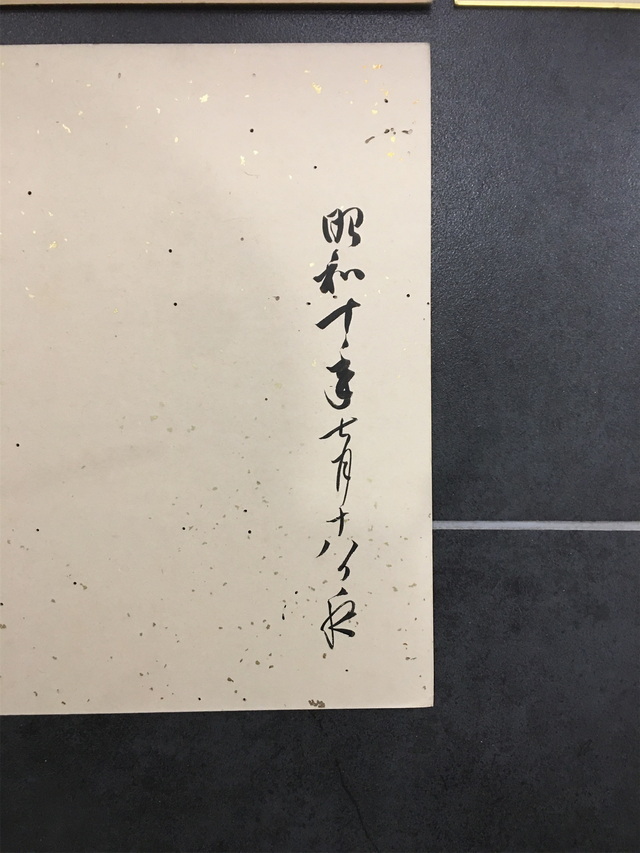 昭和十年七月十八日夜